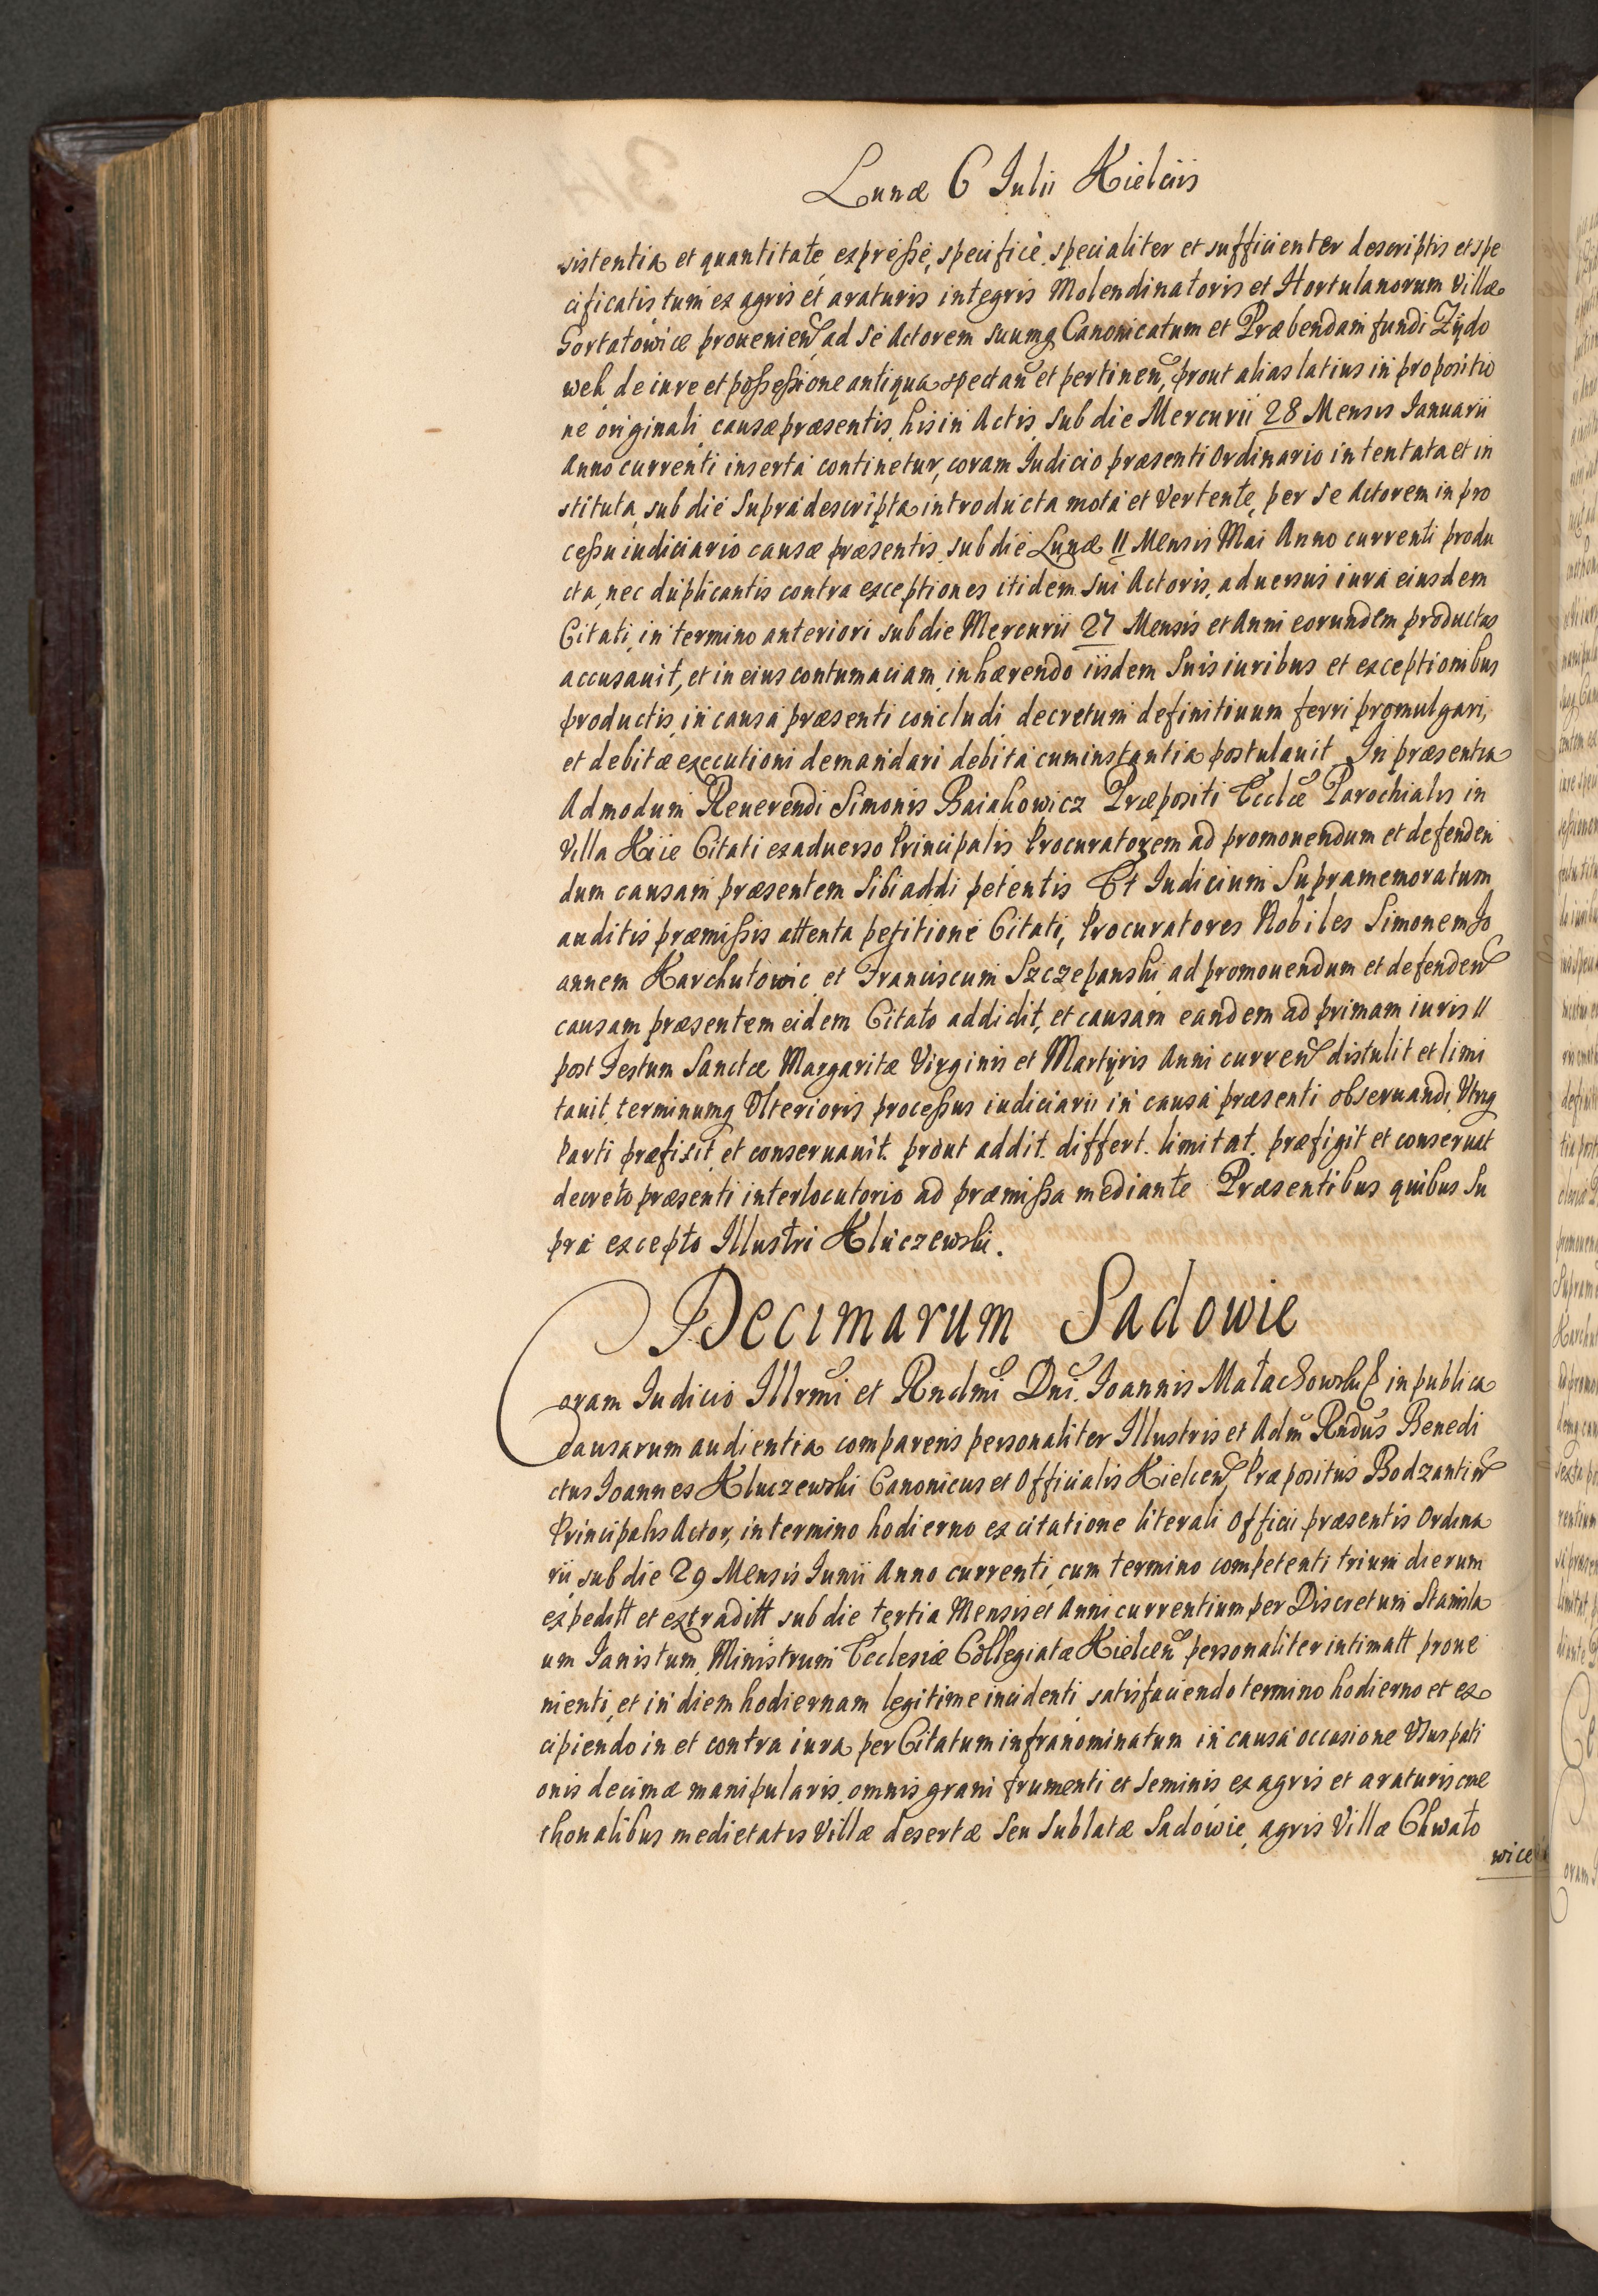 Lunæ 6 Iulii Kielciis
sistentia et quantitate expresse, specifice, specialiter et sufficienter descriptis et spe
cificatis tum ex agris et araturis integris Molendinatoris et Hortulanorum Villæ
Gortatowice prouenien, ad se Actorem suumq Canonicatum et Præbendam fundi Zÿdo
wek de iure et possessione antiqua spectan et pertinen, prout alias latius in propositio
ne originali causæ præsentis, his in Actis sub die Mercurii 28 Mensis Ianuarii
Anno currenti inserta continetur, coram Iudicio præsenti Ordinario intentata et in
stituta, sub die supradescripta introducta mota et vertente, per se Actorem in pro
cessu iudiciario causæ præsentis sub die Lunæ 11 Mensis Mai Anno currenti produ
cta, nec duplicantis contra exceptiones itidem sui Actoris, aduersus iura eiusdem
Citati, in termino anteriori sub die Mercurii 27 Mensis et Anni eorundem productas
accusauit, et in eius contumaciam, inhærendo iisdem suis iuribus et exceptionibus
productis, in causa præsenti concludi decretum definitiuum ferri promulgari,
et debitæ executioni demandari debita cum instantia postulauit. In præsentia
Admodum Reuerendi Simonis Baiakowicz Præpositi Ecclæ Parochialis in
Villa Kiie Citati ex aduerso Principalis Procuratorem ad promouendum et defenden
dum causam præsentem sibi addi petentis Et Iudicium Supramemoratum
auditis præmissis attenta petitione Citati, Procuratores Nobiles Simonem Io
annem Karchutowic et Franciscum Szczepanski ad promouendum et defenden
causam præsentem eidem Citato addidit, et causam eandem ad primam iuris
post Festum Sanctæ Margaritæ Virginis et Martÿris Anni curren distulit et limi
tauit, terminumq Vlterioris processus iudiciarii in causa præsenti obseruandi Vtriq
Parti præfixit et conseruauit. prout addit. differt. limitat. præfigit et conseruat
decreto præsenti interlocutorio ad præmissa mediante Præsentibus quibus su
pra excepto Illustri Kluczewski.
Decimarum Sadowie
Coram Iudicio Illrmi et Rndmi Dni. Ioannis Małachowski in publica
Causarum audientia comparens personaliter Illustris et Adm Rndus Benedi
ctus Ioannes Kluczewski Canonicus et Officialis Kielcen, Præpositus Bodzantin
Principalis Actor, in termino hodierno ex citatione literali Officii præsentis Ordina
rii sub die 29 Mensis Iunii Anno currenti, cum termino competenti trium dierum
expeditt et extraditt sub die tertia Mensis et Anni currentium per Discretum Stanisla
um Ianistum, Ministrum Ecclesiæ Collegiatæ Kielcen personaliter intimatt proue
nienti, et in diem hodiernam legitime incidenti satisfaciendo termino hodierno et ex
cipiendo in et contra iura per Citatum infranominatum in causa occasione Vsurpati
onis decimæ manipularis omnis grani frumenti et seminis ex agris et araturis cme
thonalibus medietatis Villæ desertæ seu sublatæ Sadowie, agris Villæ Chwało
wice